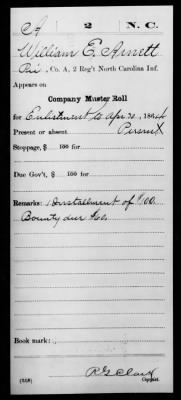 A | 2 | N. C.
William E. Arnett
Pri, Co. A, 2 Reg't North Carolina Inf.
Appears on
Company Muster Roll
for Enlistment to Apr 30, 1864
Present or absent. Present
Stoppage, $ 100 for
Due Gov't, $ 100 for
Remarks: 1 Installment of $100
Bounty due
Book mark:
(358)
R G Clark
Copyist.